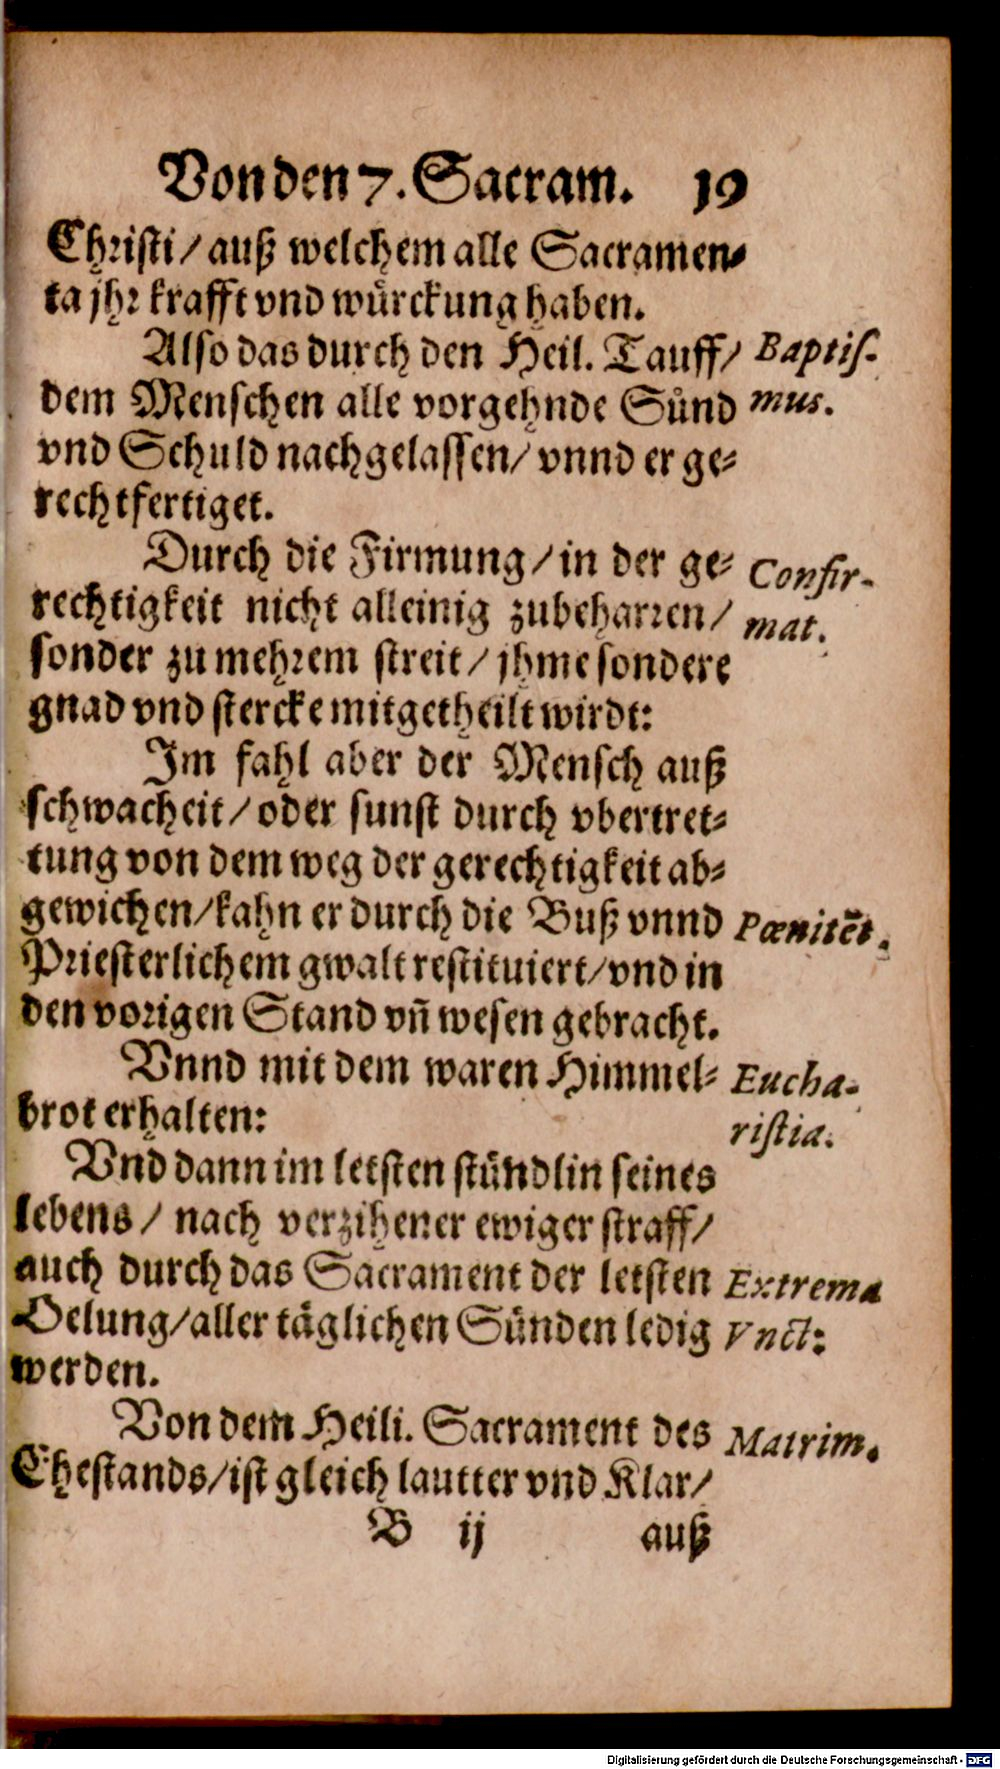 Von den 7. Sacram. 19
Christi/ auß welchem alle Sacramen-
ta jhr krafft vnd würckung haben.
Also das durch den Heil. Tauff/ Baptis-
dem Menschen alle vorgehnde Sünd mus.
vnd Schuld nachgelassen/ vnnd er ge-
rechtfertiget.
Durch die Firmung/ in der ge- Confir-
rechtigkeit nicht alleinig zubeharren/ mat.
sonder zu mehrem streit/ jhme sondere
gnad vnd stercke mitgetheilt wirdt:
Im fahl aber der Mensch auß
schwacheit/ oder sunst durch vbertret-
tung von dem weg der gerechtigkeit ab-
gewichen/ kahn er durch die Buß vnnd Pœnitẽt.
Priesterlichem gwalt restituiert/ vnd in
den vorigen Stand vñ wesen gebracht.
Vnnd mit dem waren Himmel- Eucha-
brot erhalten: ristia.
Vnd dann im letsten stündlin seines
lebens/ nach verzihener ewiger straff/
auch durch das Sacrament der letsten Extrema
Oelung/ aller täglichen Sünden ledig Vnct:
werden.
Von dem Heili. Sacrament des Matrim.
Ehestands/ ist gleich lautter vnd Klar/
B ij auß
Digitalisierung gefördert durch die Deutsche Forschungsgemeinschaft - DFG